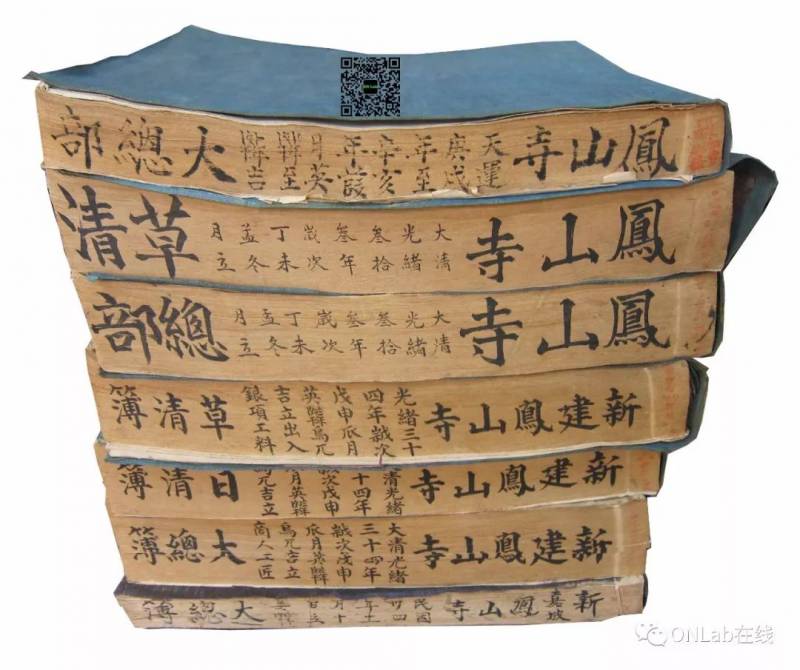 鳳山寺
天運
庚戌
年至
辛亥
年葭
月英
至
吉
大總部
鳳山寺
大清
光緒
叁拾
叁年
歲次
丁未
孟冬
月立
草清
鳳山寺
大清
光緒
叁拾
叁年
歲次
丁未
孟冬
月立
總部
新建鳳山寺
光緒三十
四年歲次
戊申瓜月
英烏兀
吉立出入
銀項工料
草清簿
新建鳳山寺
清光緒
十四年
歲次戊申
月英
兀吉立
日清簿
新建鳳山寺
大清光緒
三十四年
歲次戊申
瓜月英
烏兀吉立
商人工匠
大總簿
新嘉坡鳳山寺
民國
廿四
月十
日立
大總簿
ONLab在线